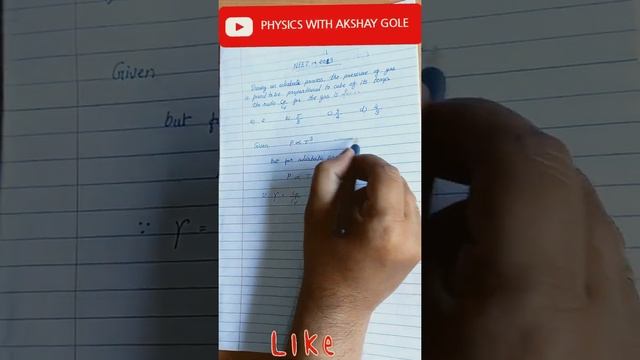 PHYSICS WITH AKSHAY GOLE
NEET
During an adiabatic process, the pressure of gas
is found to be proportional to cube of its temp.
the ratio Cp/Cv for the gas is
a) 2 b) 5/3 c) 3/2 d) 4/3
Given P ∝ T³
but for adiabatic
P ∝
∵ γ = Cp/Cv
Given
but f
∵ γ =
LIKE